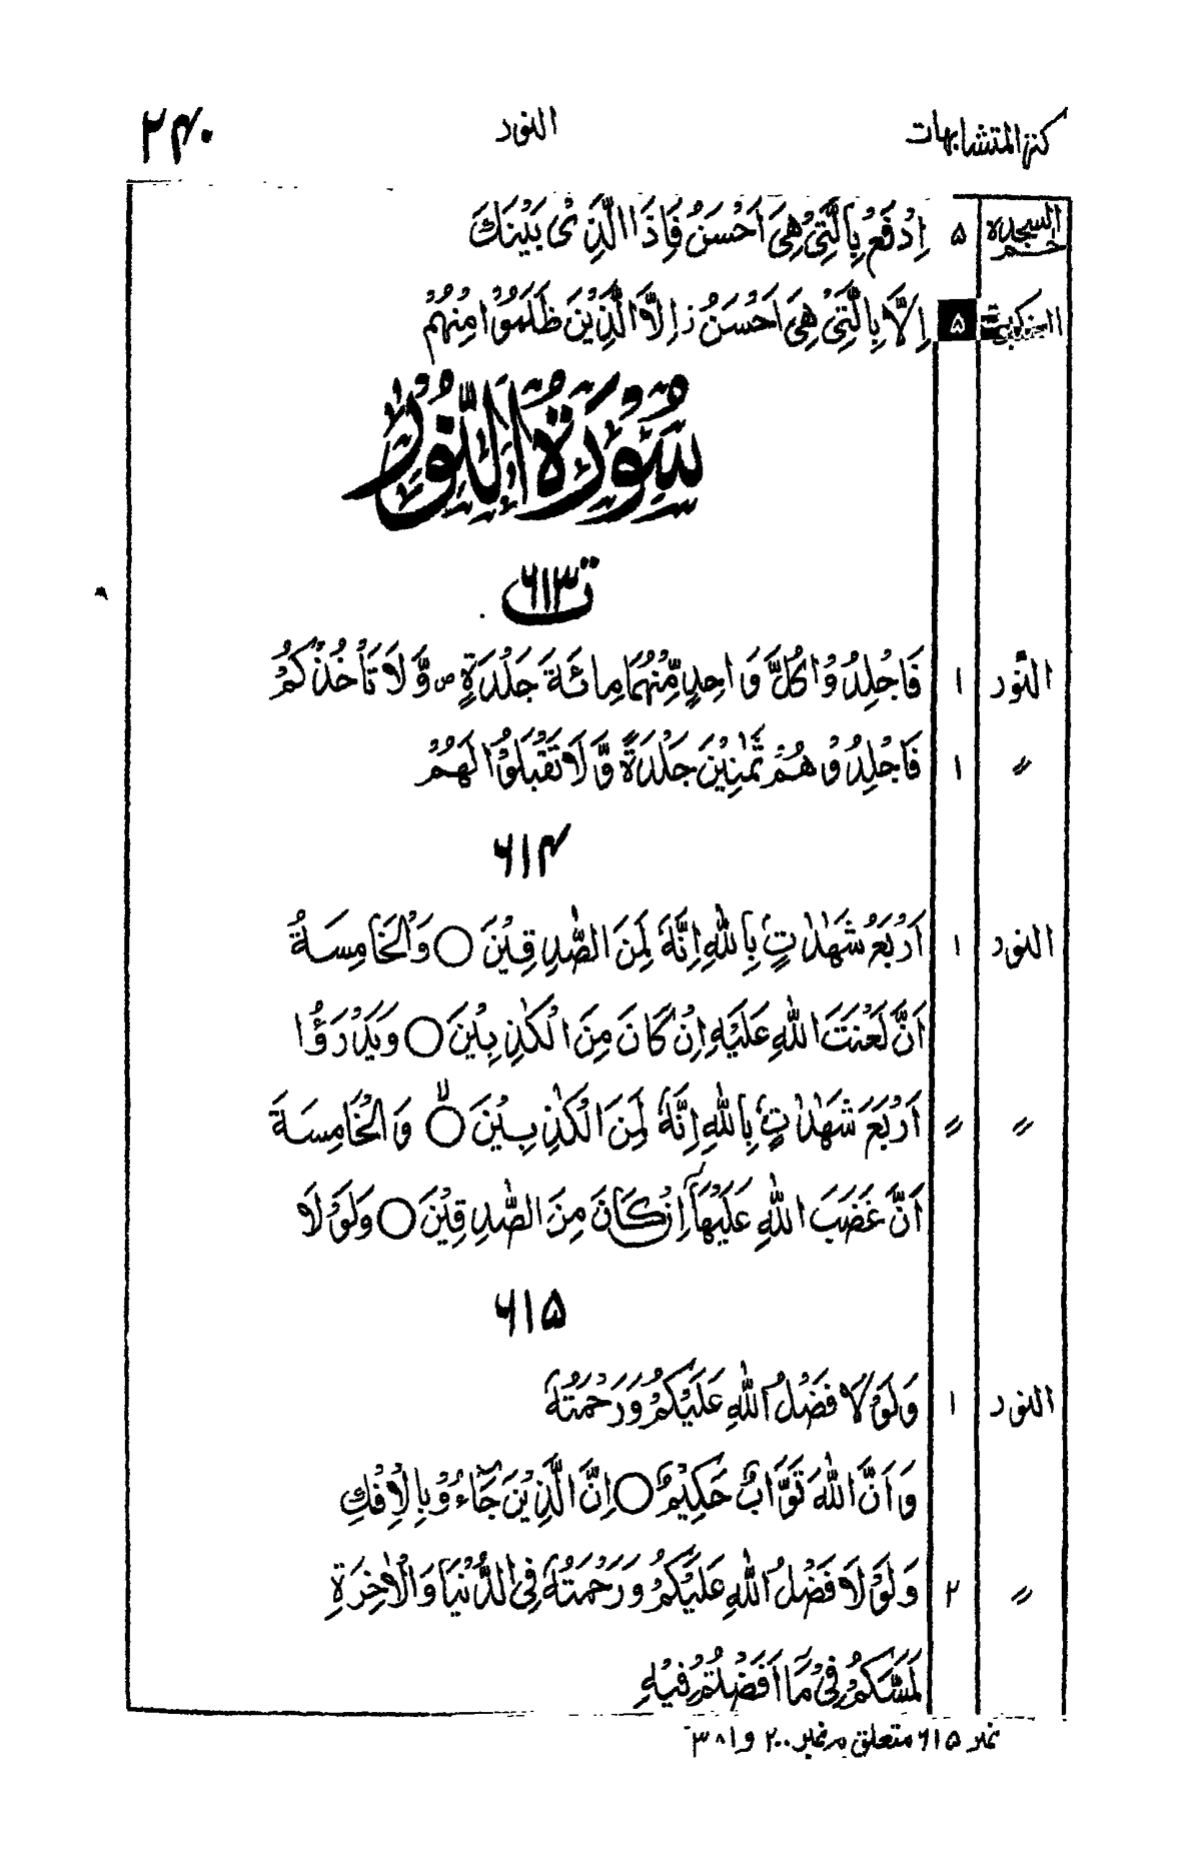 كنز المتشابهات النور ۲۴۰
حٰم السجدة ۵ اِدْفَعْ بِالَّتِيْ هِيَ اَحْسَنُ فَاِذَا الَّذِيْ بَيْنَكَ
العنكبوت ۵ اِلَّا بِالَّتِيْ هِيَ اَحْسَنُ ز اِلَّا الَّذِيْنَ ظَلَمُوْا مِنْهُمْ
سُوْرَةُ النُّوْرِ
ت ۶۱۳
النُّور ۱ فَاجْلِدُوْا كُلَّ وَاحِدٍ مِّنْهُمَا مِائَةَ جَلْدَةٍ ص وَّلَا تَأْخُذْكُمْ
〃 ۱ فَاجْلِدُوْهُمْ ثَمٰنِيْنَ جَلْدَةً وَّلَا تَقْبَلُوْا لَهُمْ
۶۱۴
النور ۱ اَرْبَعُ شَهٰدٰتٍۭ بِاللّٰهِ اِنَّهٗ لَمِنَ الصّٰدِقِيْنَ ○ وَالْخَامِسَةُ
اَنَّ لَعْنَتَ اللّٰهِ عَلَيْهِ اِنْ كَانَ مِنَ الْكٰذِبِيْنَ ○ وَيَدْرَؤُا
〃 〃 اَرْبَعَ شَهٰدٰتٍۭ بِاللّٰهِ اِنَّهٗ لَمِنَ الْكٰذِبِيْنَ ○ لا وَالْخَامِسَةَ
اَنَّ غَضَبَ اللّٰهِ عَلَيْهَآ اِنْ كَانَ مِنَ الصّٰدِقِيْنَ ○ وَلَوْلَا
۶۱۵
النور ۱ وَلَوْلَا فَضْلُ اللّٰهِ عَلَيْكُمْ وَرَحْمَتُهٗ
وَاَنَّ اللّٰهَ تَوَّابٌ حَكِيْمٌ ○ اِنَّ الَّذِيْنَ جَآءُوْ بِالْاِفْكِ
〃 ۲ وَلَوْلَا فَضْلُ اللّٰهِ عَلَيْكُمْ وَرَحْمَتُهٗ فِي الدُّنْيَا وَالْاٰخِرَةِ
لَمَسَّكُمْ فِيْ مَآ اَفَضْتُمْ فِيْهِ
نمبر ۶۱۵ متعلق بر نمبر ۲۰۰ و ۳۸۱